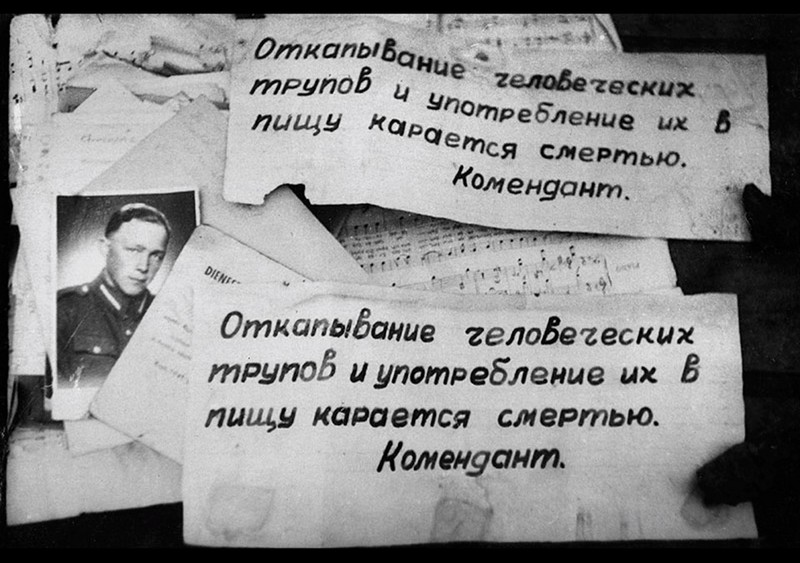 Откапывание человеческих
трупов и употребление их в
пищу карается смертью.
Комендант.
Откапывание человеческих
трупов и употребление их в
пищу карается смертью.
Комендант.